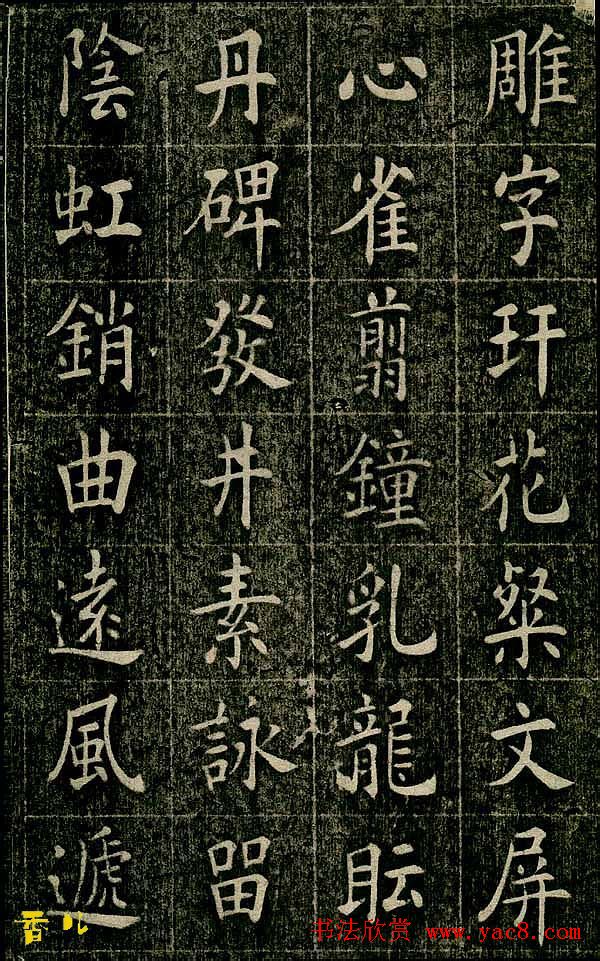 雕字玕花粲文屏
心雀翦鐘乳龍眃
丹碑發井素詠留
陰虹銷曲遠風遞
香儿
书法欣赏 www.yac8.com